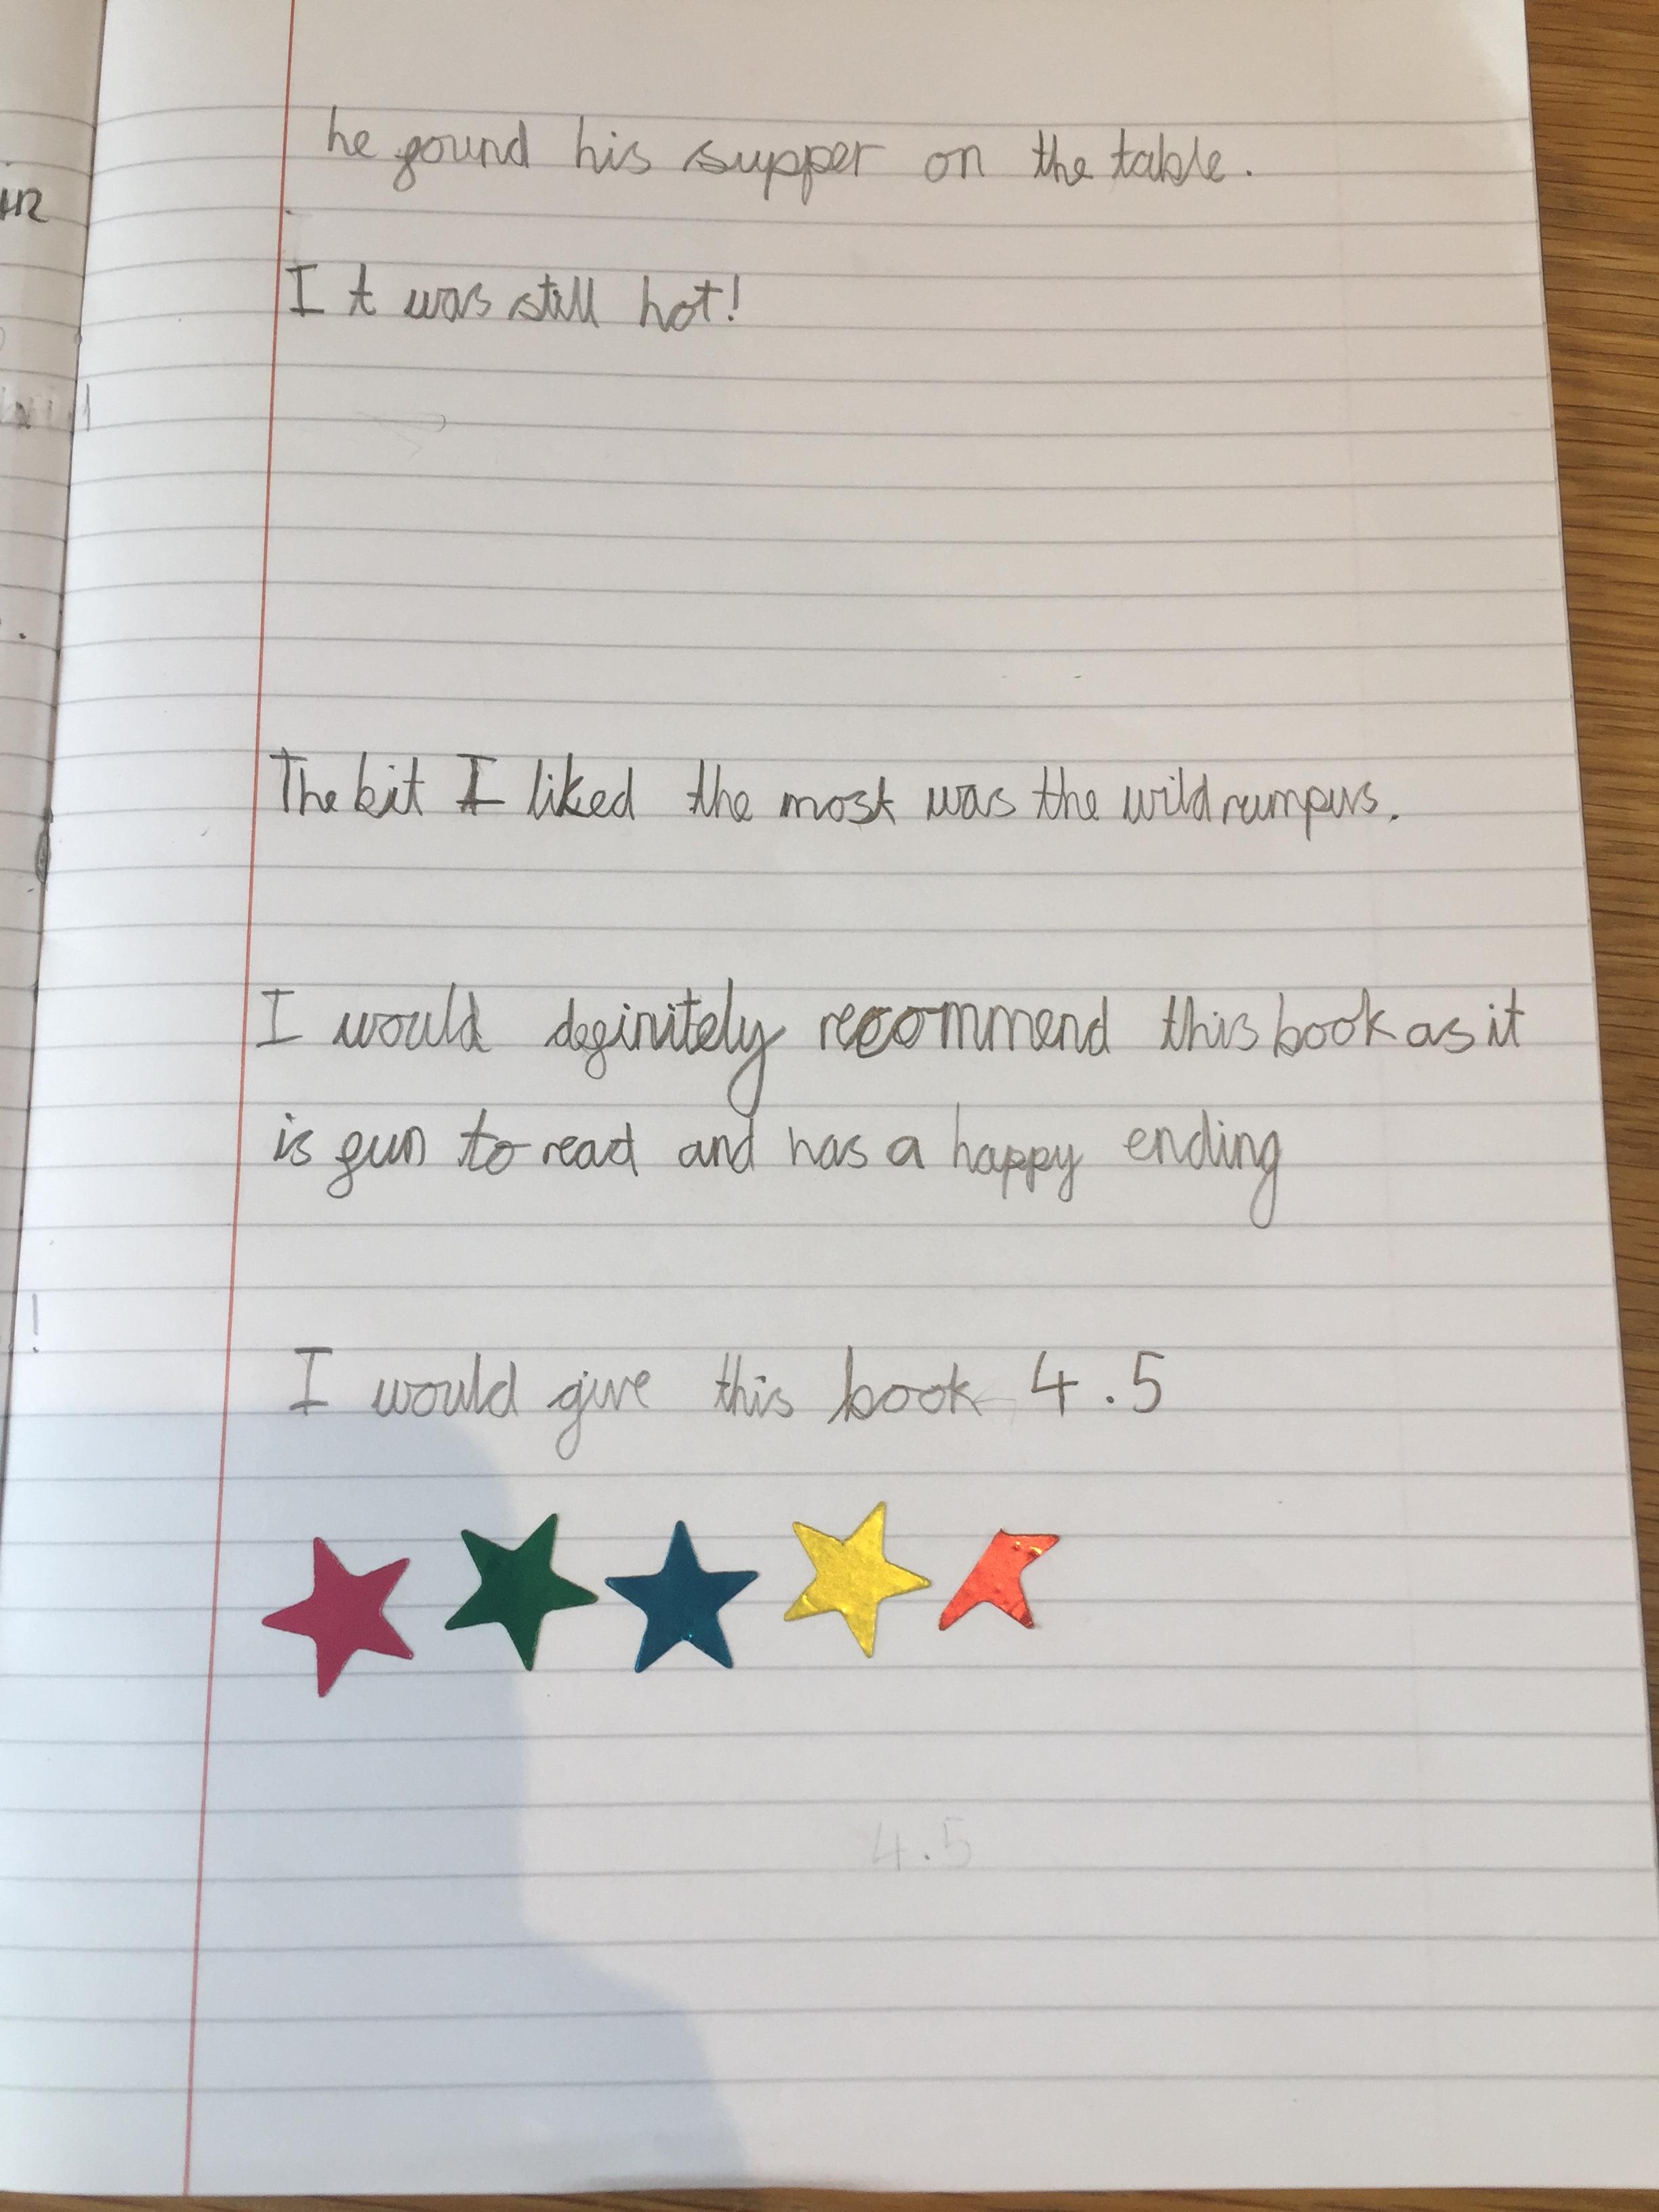 he found his supper on the table.
It was still hot!
The bit I liked the most was the wild rumpus.
I would definitely recommend this book as it
is fun to read and has a happy ending
I would give this book 4.5
4.5